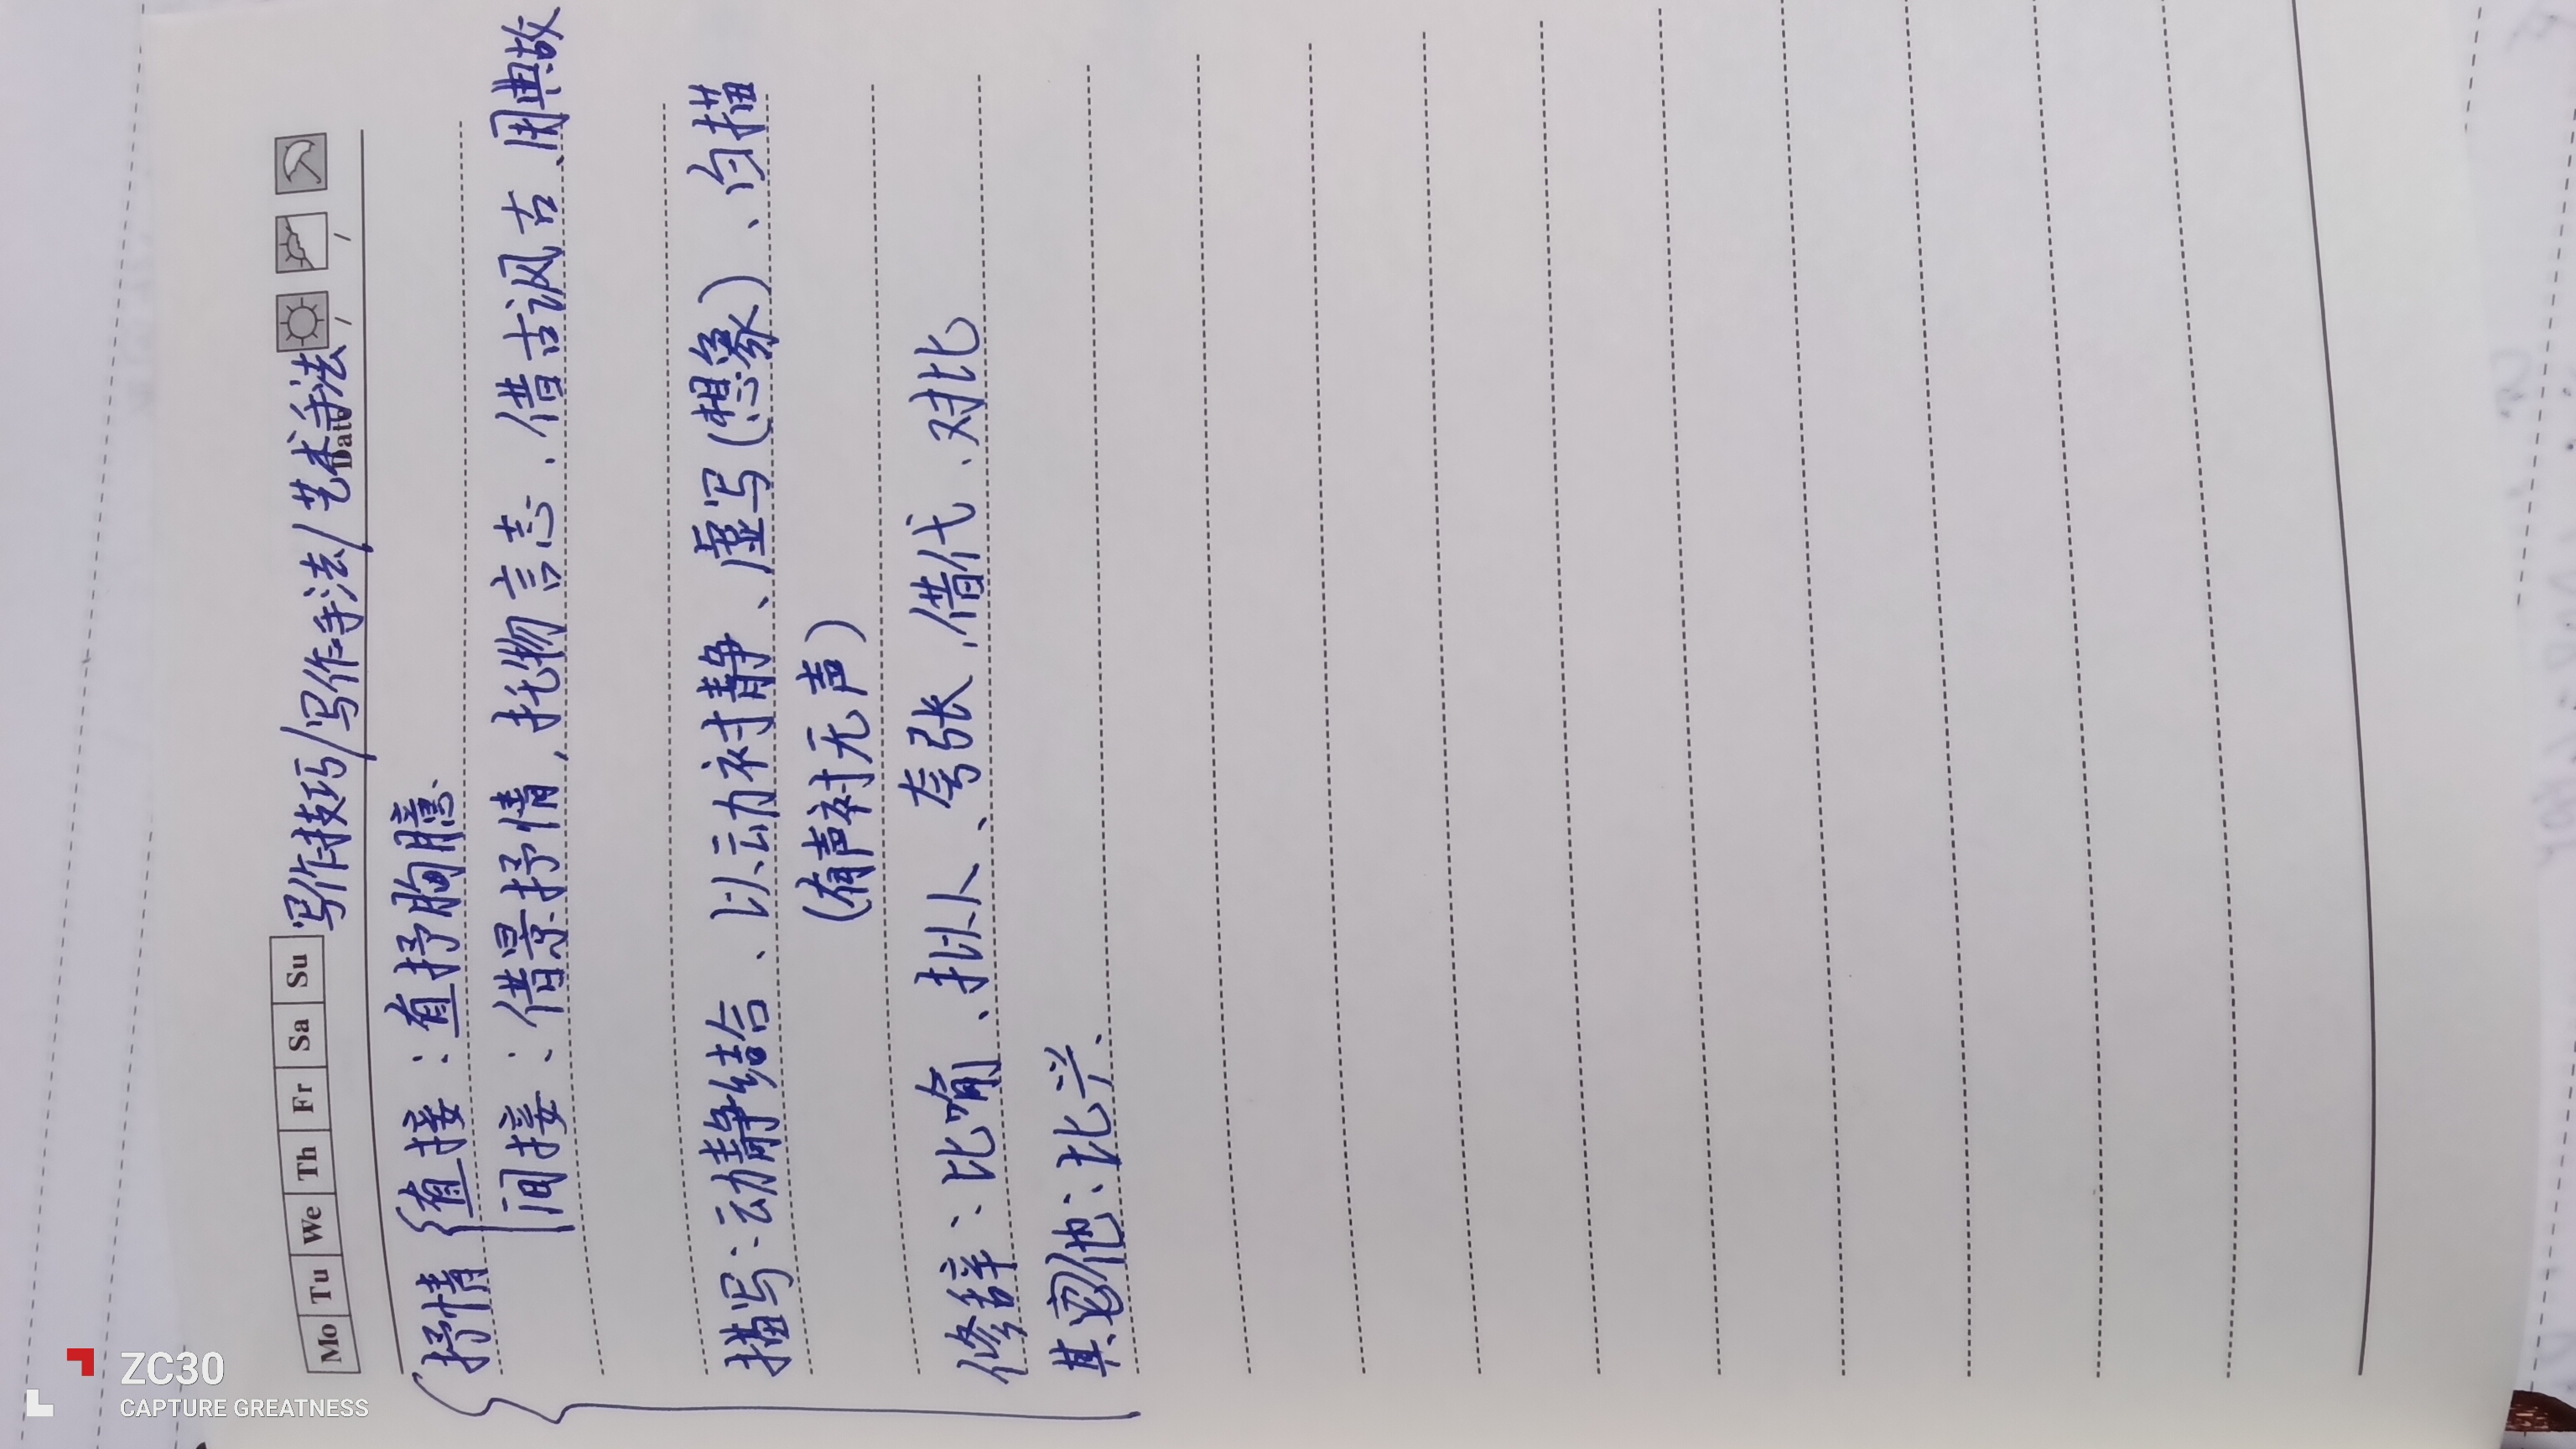 Mo Tu We Th Fr Sa Su 写作技巧/写作手法/艺术手法
Date / /
抒情 {直接：直抒胸臆、
间接：借景抒情、托物言志、借古讽古、用典故
描写：动静结合、以动衬静、虚写(想象)、白描
(有声衬无声)
修辞：比喻、拟人、夸张、借代、对比
其他：比兴、
ZC30
CAPTURE GREATNESS